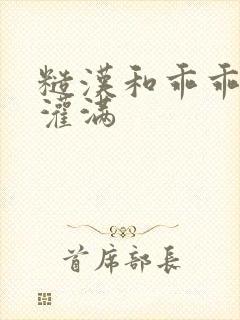 糙漢和乖乖
灌滿
首席部長